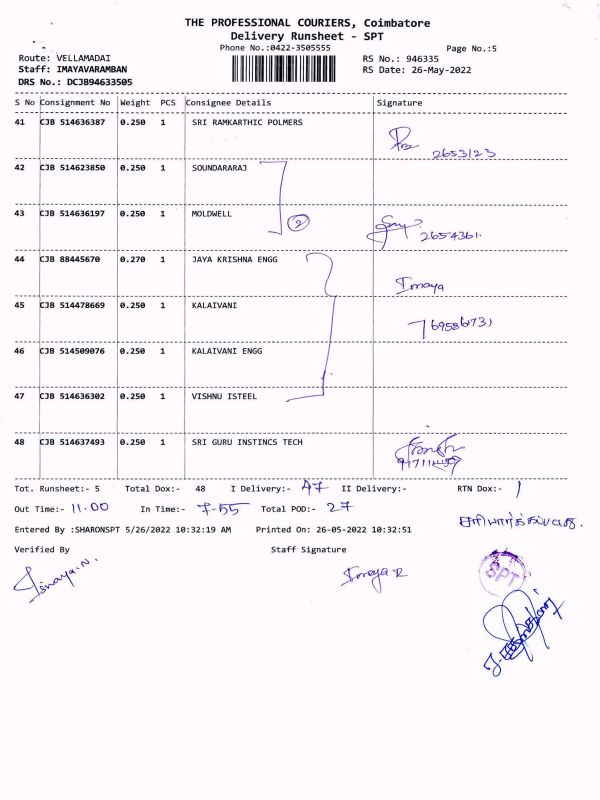 THE PROFESSIONAL COURIERS, Coimbatore
Delivery Runsheet - SPT
Phone No.:0422-3505555
Page No.:5
Route: VELLAMADAI
RS No.: 946335
Staff: IMAYAVARAMBAN
RS Date: 26-May-2022
DRS No.: DCJB94633505
S No Consignment No Weight PCS Consignee Details Signature
41 CJB 514636387 0.250 1 SRI RAMKARTHIC POLMERS
2653123
42 CJB 514623850 0.250 1 SOUNDARARAJ
43 CJB 514636197 0.250 1 MOLDWELL
2
2654361
44 CJB 88445670 0.270 1 JAYA KRISHNA ENGG
Imaya
45 CJB 514478669 0.250 1 KALAIVANI
46 CJB 514509076 0.250 1 KALAIVANI ENGG
47 CJB 514636302 0.250 1 VISHNU ISTEEL
48 CJB 514637493 0.250 1 SRI GURU INSTINCS TECH
Tot. Runsheet:- 5 Total Dox:- 48 I Delivery:- 47 II Delivery:- RTN Dox:- 1
Out Time:- 11.00 In Time:- 7-55 Total POD:- 27
சரிபார்க்கப்பட்டது.
Entered By :SHARONSPT 5/26/2022 10:32:19 AM Printed On: 26-05-2022 10:32:51
Verified By Staff Signature
Imaya.N.
Imaya R
SPT